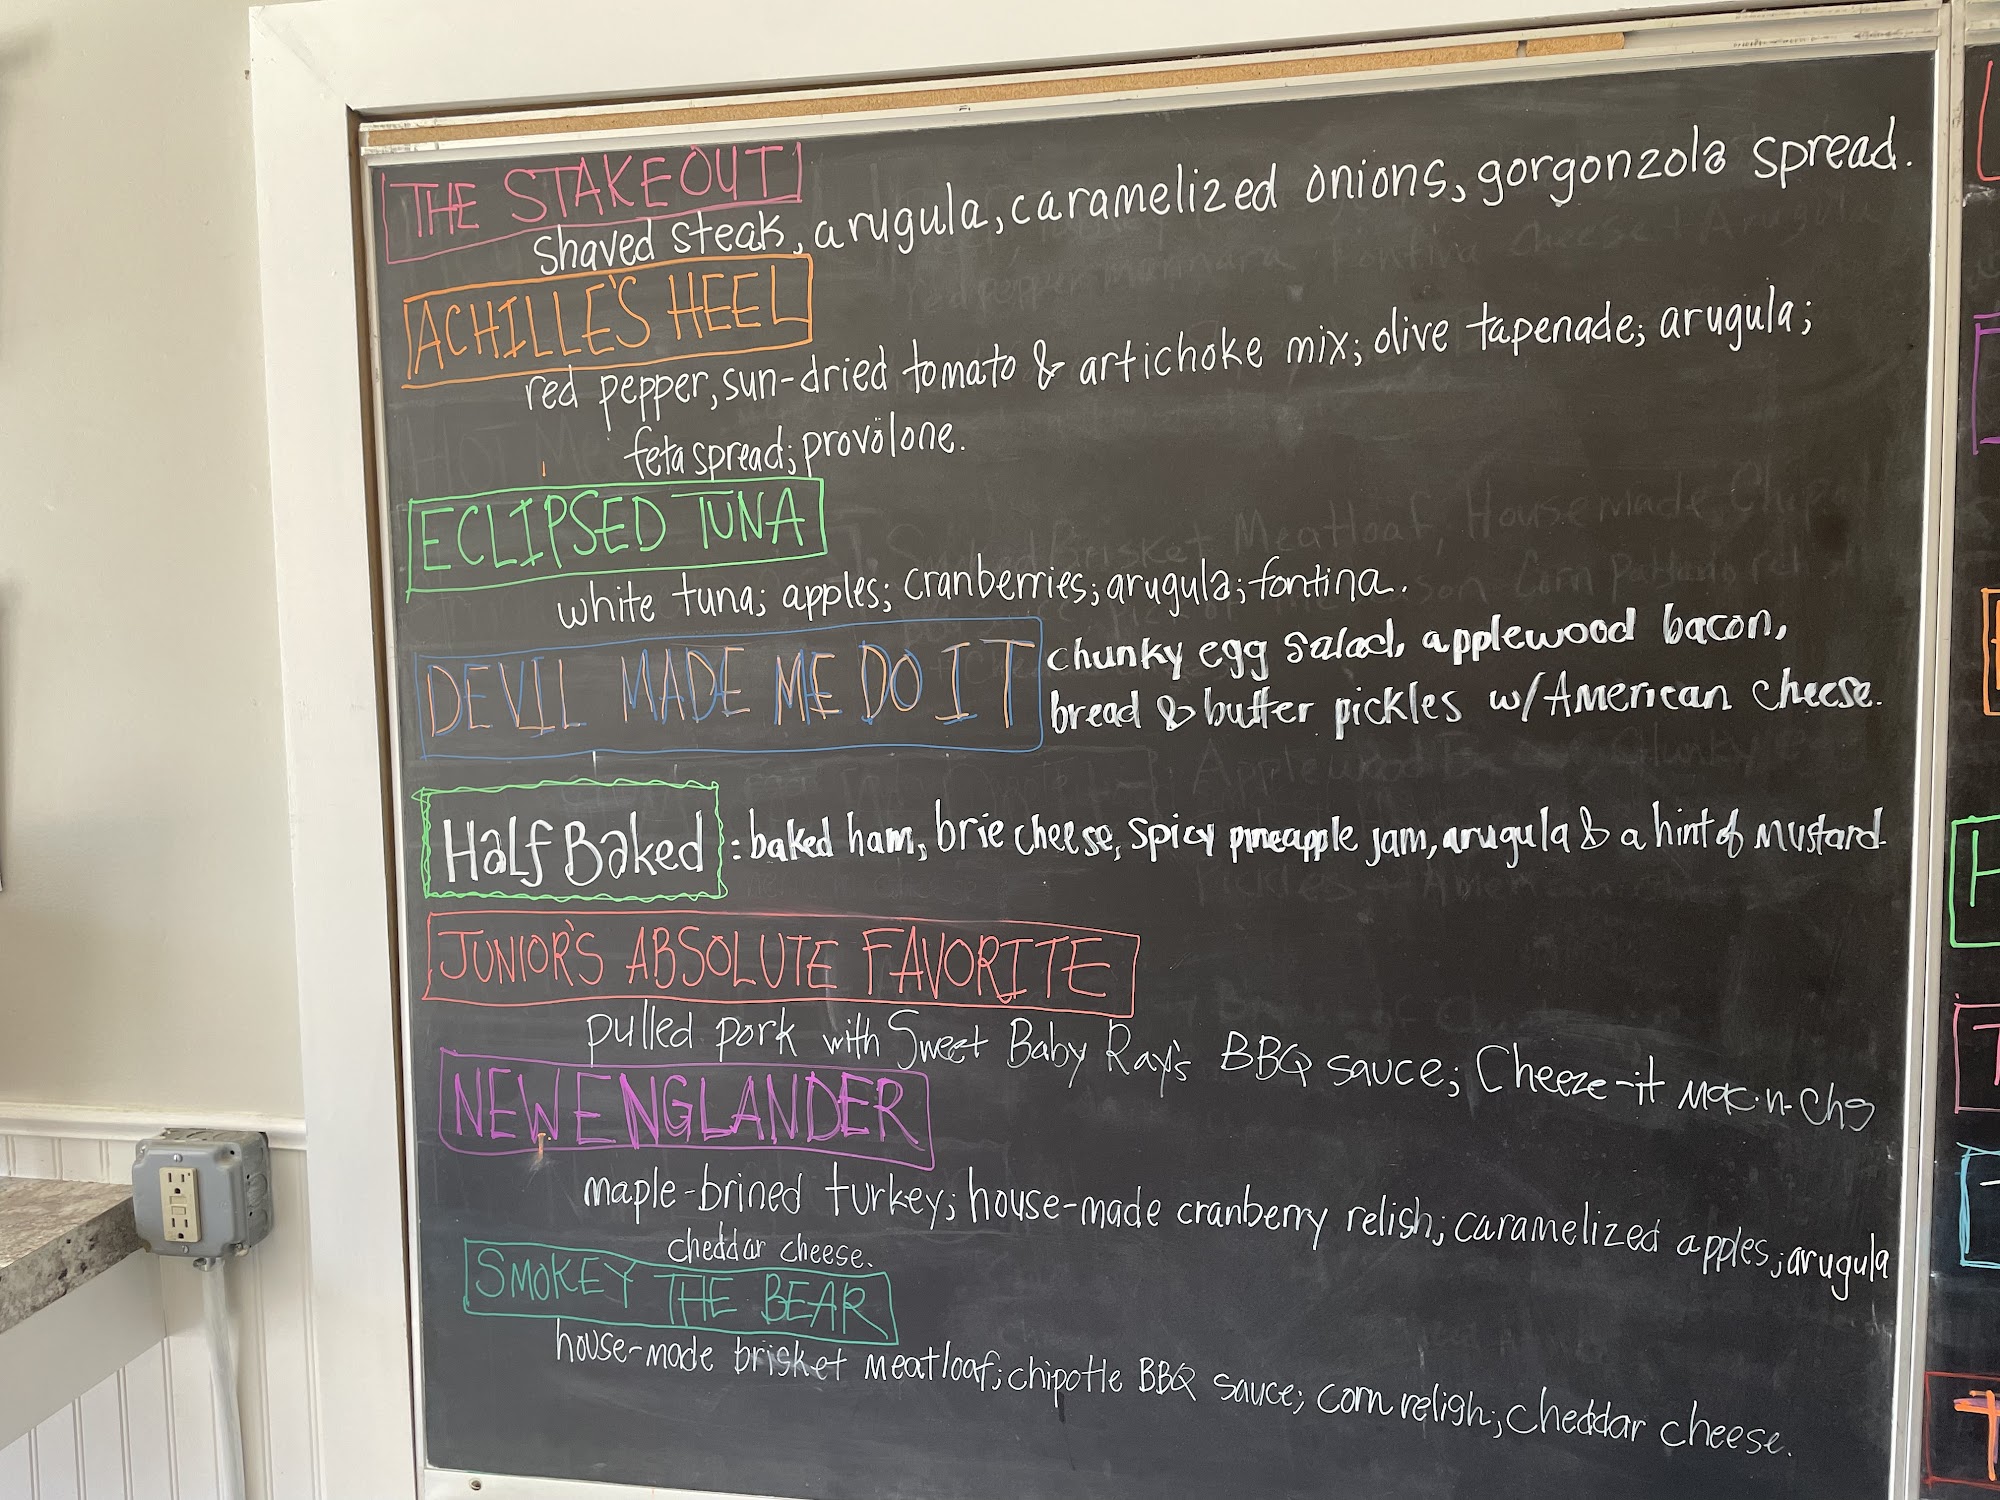 THE STAKEOUT
shaved steak, arugula, caramelized onions, gorgonzola spread.
ACHILLE'S HEEL
red pepper, sun-dried tomato & artichoke mix; olive tapenade; arugula;
feta spread; provolone.
ECLIPSED TUNA
white tuna; apples; cranberries; arugula; fontina.
DEVIL MADE ME DO IT
chunky egg salad, applewood bacon,
bread & butter pickles w/ American cheese.
Half Baked : baked ham, brie cheese, spicy pineapple jam, arugula & a hint of mustard
JUNIOR'S ABSOLUTE FAVORITE
pulled pork with Sweet Baby Ray's BBQ sauce; Cheeze-it Mac-n-Chs
NEW ENGLANDER
maple-brined turkey; house-made cranberry relish; caramelized apples; arugula
cheddar cheese.
SMOKEY THE BEAR
house-made brisket meatloaf; chipotle BBQ sauce; corn relish; cheddar cheese.